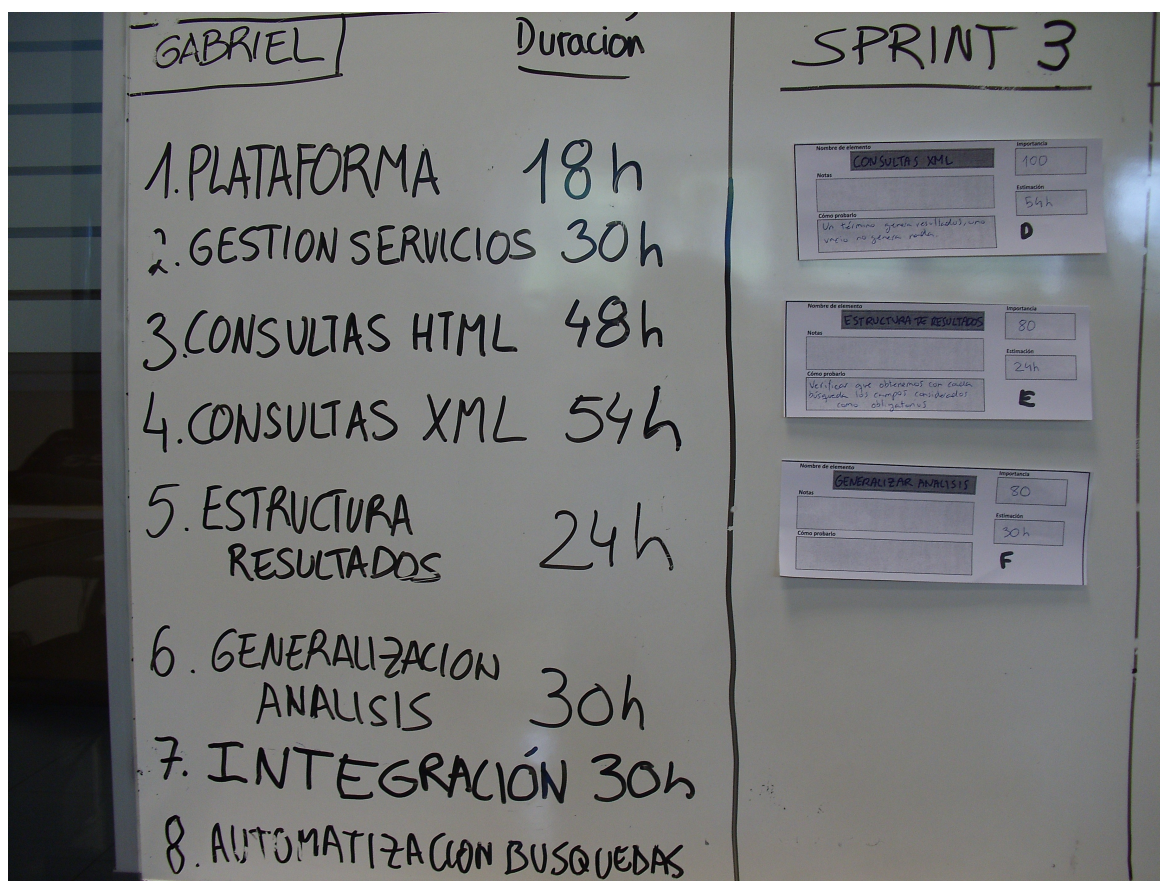 GABRIEL Duración
1. PLATAFORMA 18h
2. GESTION SERVICIOS 30h
3. CONSULTAS HTML 48h
4. CONSULTAS XML 54h
5. ESTRUCTURA
RESULTADOS 24h
6. GENERALIZACION
ANALISIS 30h
7. INTEGRACIÓN 30h
8. AUTOMATIZACION BUSQUEDAS
SPRINT 3
Nombre de elemento Importancia
CONSULTAS XML 100
Notas
Estimación
54h
Cómo probarlo
Un término genera resultados, uno
vacio no genera nada.
D
Nombre de elemento Importancia
ESTRUCTURA DE RESULTADOS 80
Notas
Estimación
24h
Cómo probarlo
Verificar que obtenemos con cada
búsqueda los campos considerados
como obligatorios
E
Nombre de elemento Importancia
GENERALIZAR ANALISIS 80
Notas
Estimación
30h
Cómo probarlo
F